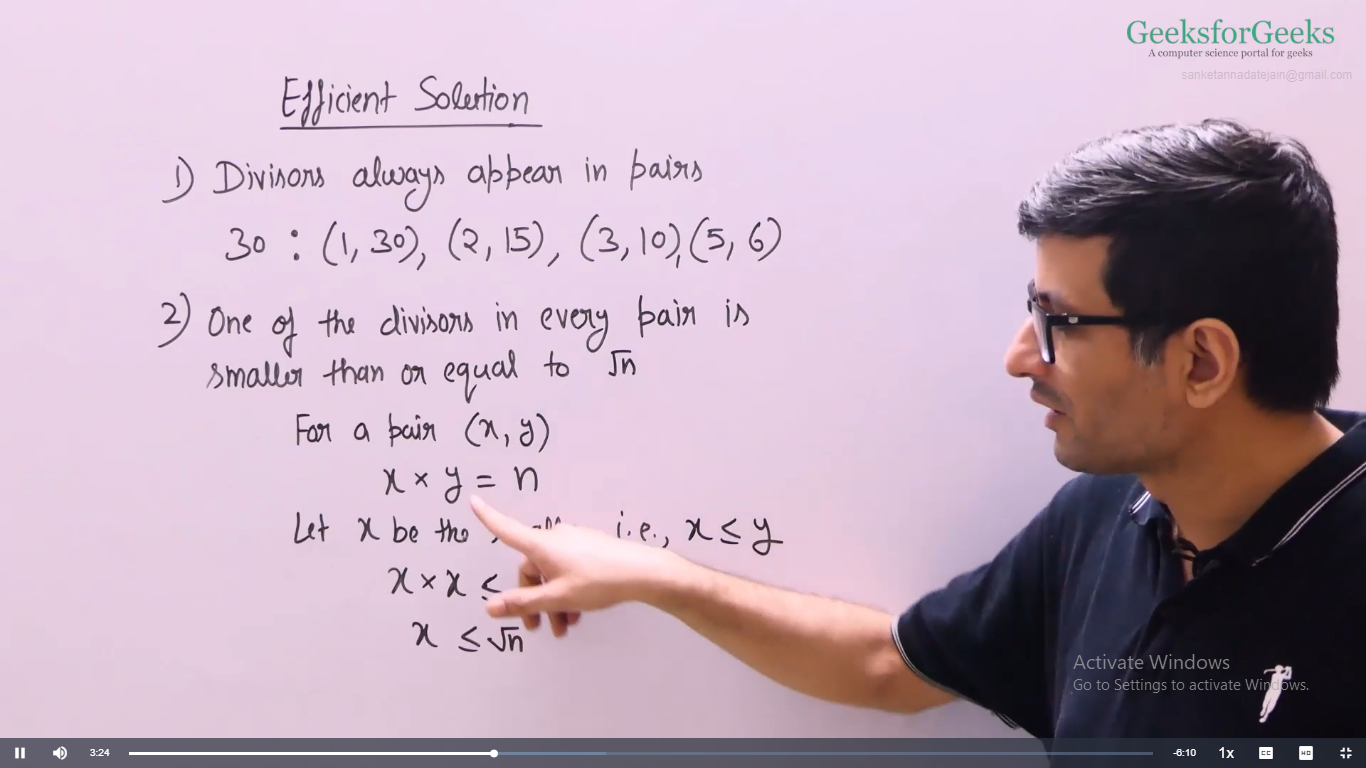 GeeksforGeeks
A computer science portal for geeks
sanketannadatejain@gmail.com
Efficient Solution
1) Divisors always appear in pairs
30 : (1, 30), (2, 15), (3, 10), (5, 6)
2) One of the divisors in every pair is
smaller than or equal to √n
For a pair (x, y)
x × y = n
Let x be the i.e., x ≤ y
x × x ≤
x ≤ √n
Activate Windows
Go to Settings to activate Windows.
3:24
-6:10
1x
CC
HD